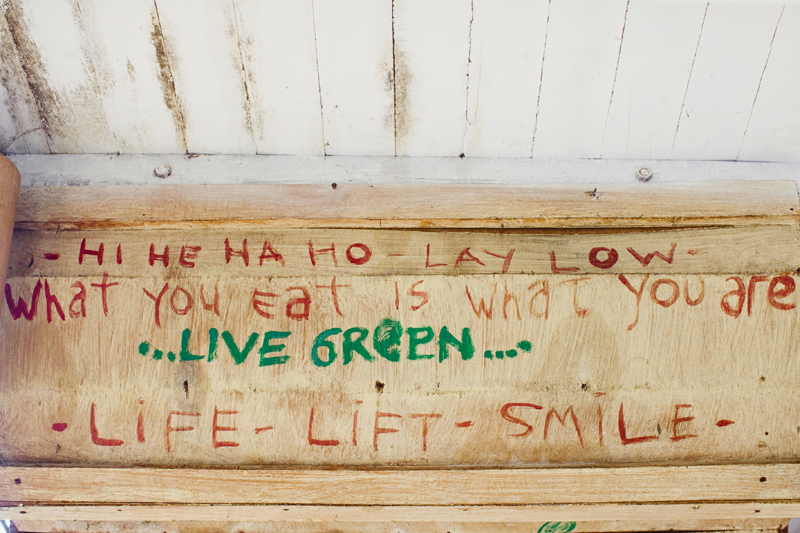 - HI HE HA HO - LAY LOW -
What you eat is what you are
...LIVE GREEN...
- LiFE - LiFT - SMiLE -